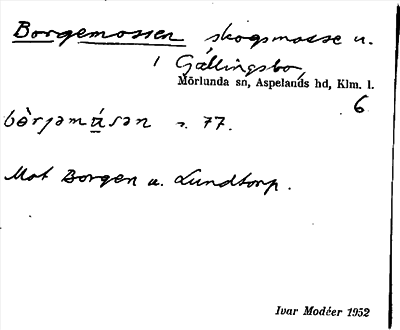 Borgemossen skogsmosse u.
Gällingsbo
Mörlunda sn, Aspelands hd, Klm. l.
6
bòrjəmásən s. 77.
Mot Borgen u. Lundtorp.
Ivar Modéer 1952